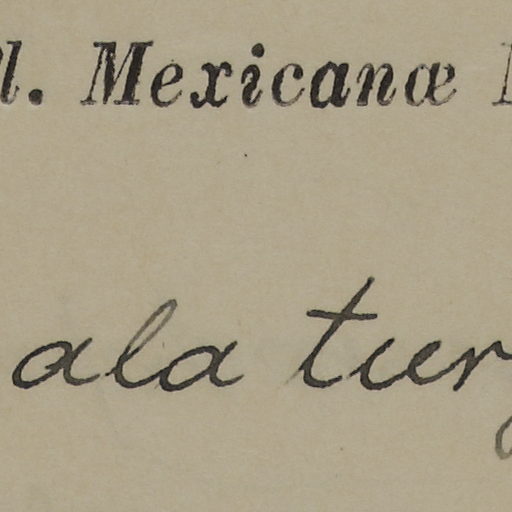 l. Mexicanæ
ala tur